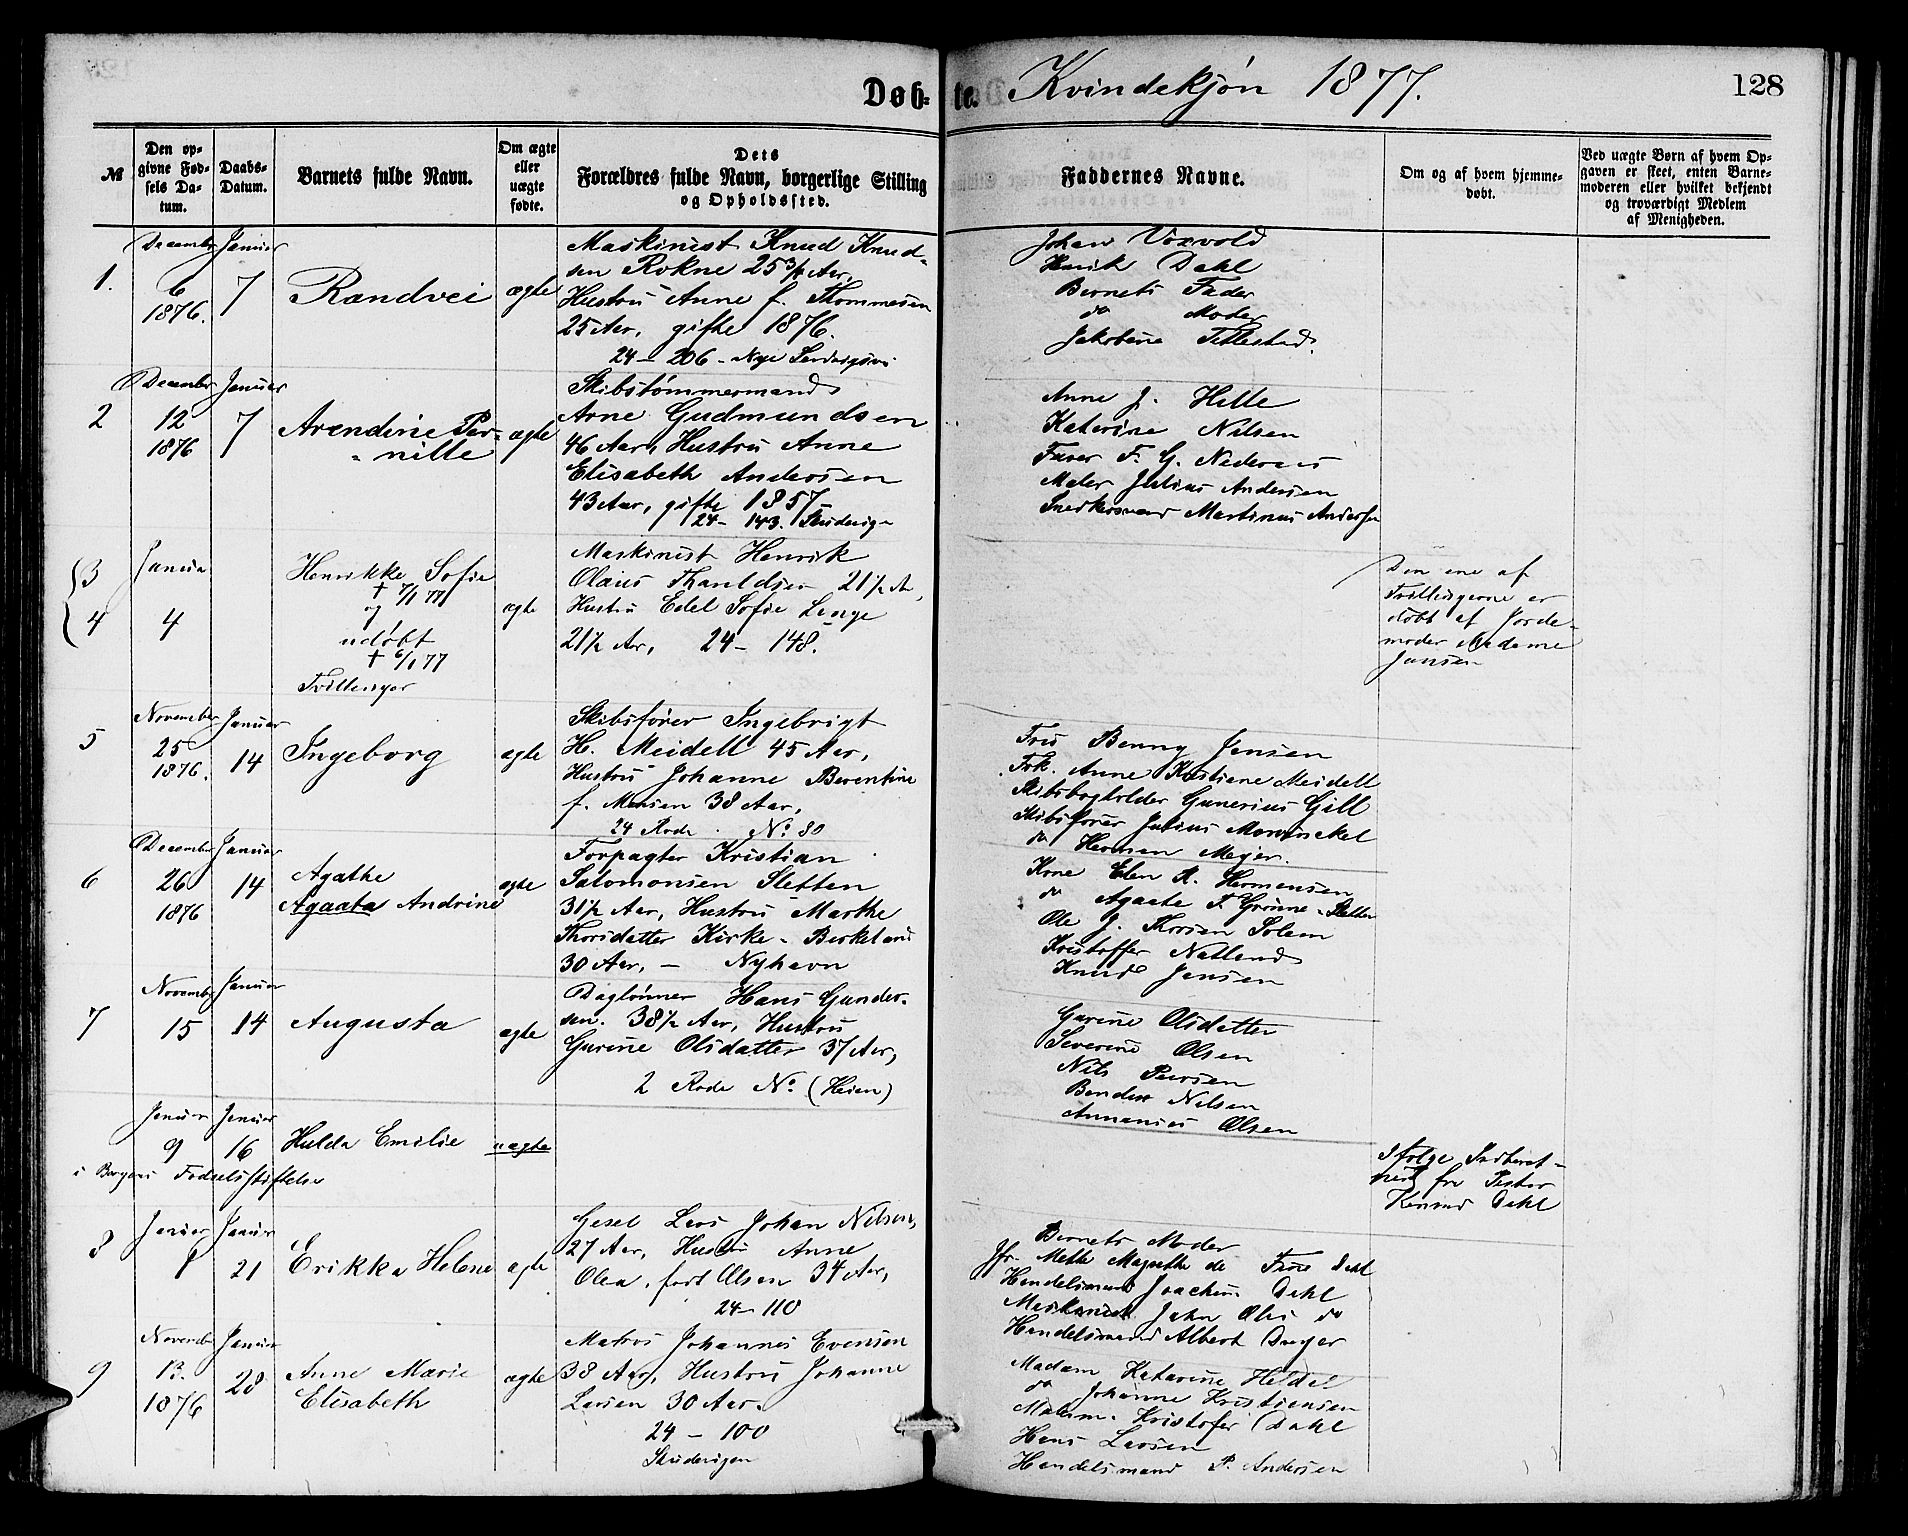 Døb-te. Kvindekjøn 1877.
128
№
Den opgivne Fødsels Datum.
Daabs-Datum.
Barnets fulde Navn.
Om ægte eller uægte fødte.
Dets Forældres fulde Navn, borgerlige Stilling og Opholdssted.
Faddernes Navne.
Om og af hvem hjemmedøbt.
Ved uægte Børn af hvem Opgaven er skeet, enten Barnemoderen eller hvilket bekjendt og troværdigt Medlem af Menigheden.
1.
December
6
1876.
Januar
7
Randvei
ægte
Maskinist Knud Knud-
sen Rokne 25 3/4 Aar,
Hustru Anne f. Thommesen
25 Aar, gifte 1876.
24 - 206 - Nye
Johan Voxvold
Henrik Dahl
Barnets Fader
do Moder
Jakobine Tellestad.
2
December
12
1876
Januar
7
Arendine Per-
nille
ægte
Skibstømmermand
Arne Gudmundsen
46 Aar, Hustru Anne
Elisabeth Andersen
43 Aar, gifte 1857
24 - 143.
Anne J. Hille
Katerine Nilsen
F. G.
Maler Julius Andersen
Martinus Andersen
3
4
Janua
4
Henrikke Sofie
† 7/1 77
og
udøbt
† 6/1 77
Tvillinger
ægte
Maskinist Henrik
Olaus 21 1/2 Ar,
Hustru Edel Sofie Lange
21 1/2 Aar, 24 - 148.
Den ene af
Tvillingerne er
døbt af Jorde-
moder Madame
Jansen
5
November
25
1876.
Januar
14
Ingeborg
ægte
Skibsfører Ingebrigt
H. Meidell 45 Aar,
Hustru Johanne Berentine
f. Monsen 38 Aar,
24 Rode No. 80
Fru Benny Jensen
Frk. Anne Kristiane Meidell
Skibsbogholder Gunerius Gill
Skibsfører Julius Mowinckel
do Herman Mejer.
6
December
26
1876
Januar
14
Agathe
Agaata Andrine
ægte
Forpagter Kristian
Salomonsen Sletten
31 1/2 Aar, Hustru Marthe
Thorsdatter Kirke-Birkeland
30 Aar, - Nyhavn
Kone Elen K. Hermansen
do Agaate T. Grønne-Sletten
Ole J. Thorsen Solem
Kristoffer Natland
Knud Jensen
7
Novemb
15
Januar
14
Augusta
ægte
Daglønner Hans Gunder-
sen. 38 1/2 Aar, Hustru
Gurine Olsdatter 37 Aar,
2 Rode No. (Heien)
Gurine Olsdatter
Severine Olsen
Nils Persen
Bendix Nilsen
Annanias Olsen
Januar
9
Januar
16
Hulda Emilie
uægte
i Bergens Fødselsstiftelse
Ifølge Indberet-
ning fra Pastor
Konrad Dahl
8
Januar
1
Januar
21
Erikka Helene
ægte
Gesel Lars Johan Nilsen,
27 Aar, Hustru Anne
Olea, født Olsen 34 Aar,
24 - 110
Barnets Moder
Jfr. Mette Magrethe de Fine Dahl
Handelsmand Joachim Dahl
Maskinist John Olsi do
Handelsmand Albert Dreyer
9
November
13.
1876
Januar
28
Anne Marie
Elisabeth
ægte
Matros Johannes Evensen
38 Aar, Hustru Johanne
Larsen 30 Aar.
24 - 100
Skuderigen
Madam Katarine Heldal
do Johanne Kristiansen
Kristofer Dahl
Hans Larsen
Handelsmand P. Andersen